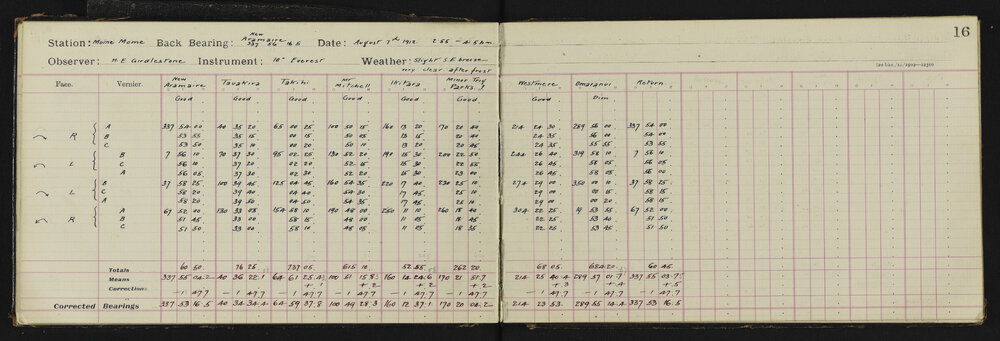 16
New
Aramaire
Station: Moine Mome Back Bearing: 337 56 16.5 Date: August 7th 1912 2.55 — 4.5 p.m.
Observer: H.E. Girdlestone Instrument: 10" Everest Weather: Slight S.E. breeze
very clear after frost
Face. Vernier. New Aramaire Tauakira Takihi Mr Mitchell Ikitara Minor Trig Parks. Westmere Omaranui Return
Good Good Good Good Good Good Good Dim
R A 337 54 00 40 35 20 65 00 25 100 50 15 160 13 20 170 20 40 214 24 30 289 56 00 337 54 00
B 53 55 35 15 00 15 50 05 13 15 20 40 24 35 56 00 54 00
C 53 50 35 10 00 20 50 10 13 20 20 45 24 35 55 55 53 55
L B 7 56 10 70 37 30 95 02 25 130 52 20 190 15 30 200 22 50 244 26 40 319 58 10 7 56 10
C 56 10 37 20 02 20 52 15 15 30 22 55 26 45 58 05 56 05
A 56 05 37 30 02 30 52 20 15 30 23 00 26 45 58 05 56 00
L B 37 58 25 100 39 45 125 04 45 160 54 35 220 17 40 230 25 10 274 29 00 350 00 10 37 58 25
C 58 20 39 40 04 40 54 30 17 45 25 10 29 00 00 15 58 15
A 58 20 39 50 04 50 54 35 17 45 25 10 29 00 00 20 58 15
R A 67 52 40 130 33 05 154 58 10 190 48 00 250 11 10 260 18 40 304 22 25 19 53 55 67 52 00
B 51 45 33 00 58 15 48 00 11 05 18 45 22 25 53 40 51 50
C 51 50 33 00 58 10 48 05 11 05 18 35 22 25 53 45 51 50
Totals 60 50 76 25 737 05 615 10 52 55 262 20 68 05 684 20 60 45
Means 337 55 04.2 40 36 22.1 64 61 25.4 100 51 15.8 160 14 24.6 170 21 51.7 214 25 40.4 289 57 01.7 337 55 03.7
Corrections + 1 + 2 + 2 + 3 + 4 + 5
— 1 47.7 — 1 47.7 — 1 47.7 — 1 47.7 — 1 47.7 — 1 47.7 — 1 47.7 — 1 47.7 — 1 47.7
Corrected Bearings 337 53 16.5 40 34 34.4 64 59 37.8 100 49 28.3 160 12 37.1 170 20 04.2 214 23 53. 289 55 14.4 337 53 16.5